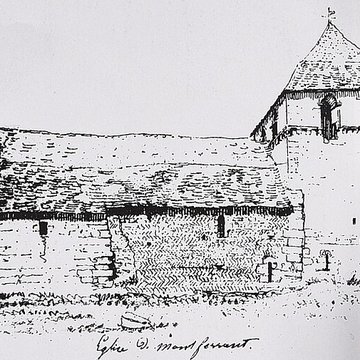 Église de Montferrant